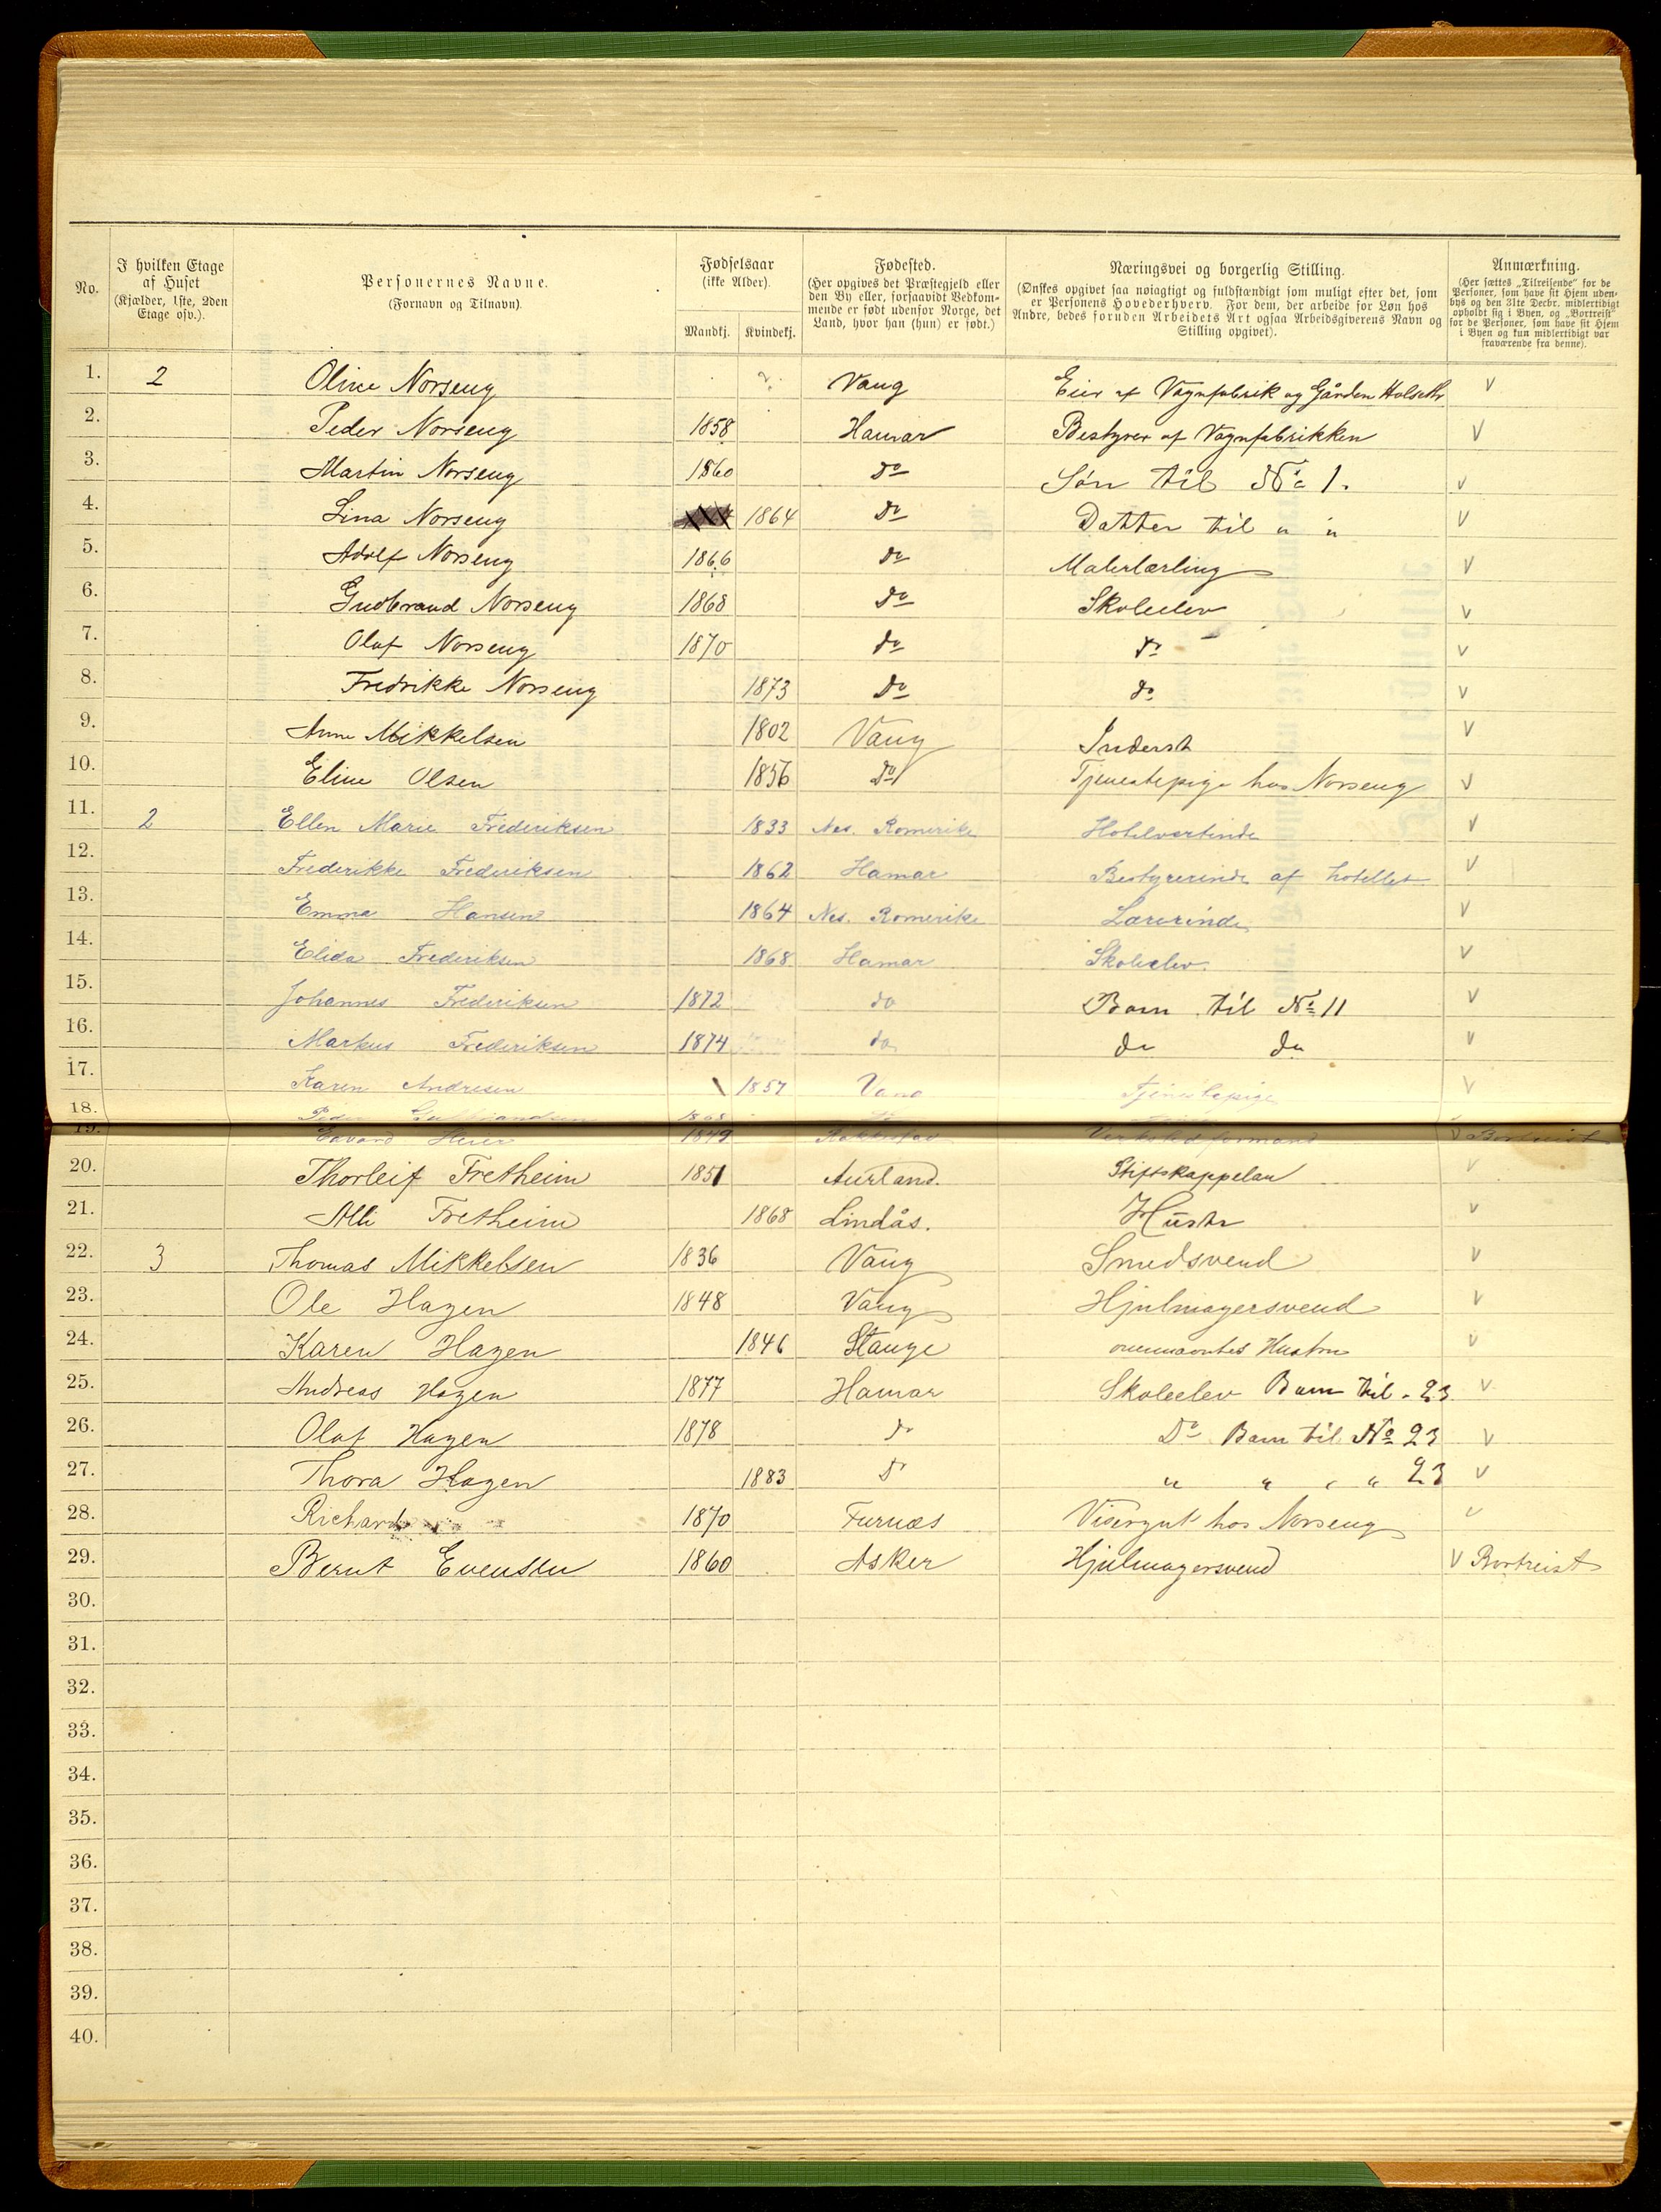 No. I hvilken Etage af Huset (Kjælder, 1ste, 2den Etage osv.). Personernes Navne. (Fornavn og Tilnavn). Fødselsaar (ikke Alder). Mandkj. Kvindekj. Fødested. (Her opgives det Præstegjeld eller den By eller, forsaavidt Vedkommende er født udenfor Norge, det Land, hvor han (hun) er født.) Næringsvei og borgerlig Stilling. (Ønskes opgivet saa nøiagtigt og fuldstændigt som muligt efter det, som er Personens Hovederhverv. For dem, der arbeide for Løn hos Andre, bedes foruden Arbeidets Art ogsaa Arbeidsgiverens Navn og Stilling opgivet). Anmærkning. (Her sættes „Tilreisende“ for de Personer, som have sit Hjem udenbys og den 31te Decbr. midlertidigt opholdt sig i Byen, og „Bortreist“ for de Personer, som have sit Hjem i Byen og kun midlertidigt var fraværende fra denne).
1. 2 Oline Norseng ? Vang Eier af Vognfabrik og Gården Holseth V
2. Peder Norseng 1858 Hamar Bestyrer af Vognfabrikken V
3. Martin Norseng 1860 do Søn til No 1. V
4. Lina Norseng 1864 do Datter til " " V
5. Adolf Norseng 1866 do Malerlærling V
6. Gudbrand Norseng 1868 Do Skoleelev V
7. Olaf Norseng 1870 do do V
8. Fredrikke Norseng 1873 Do do V
9. Anne Mikkelsen 1802 Vang Inderst V
10. Eline Olsen 1856 Do Tjenestepige hos Norseng V
11. 2 Ellen Marie Frederiksen 1833 Nes. Romerike Hotelvertinde V
12. Frederikke Frederiksen 1862 Hamar Bestyrerinde af hotellet V
13. Emma Hansen 1864 Nes. Romerike Lærerinde V
14. Elida Frederiksen 1868 Hamar Skoleelev. V
15. Johannes Frederiksen 1872 do Barn til No 11 V
16. Markus Frederiksen 1874 do do do V
17. Karen Andresen 1857 Vang Tjenestepige V
18. Peder Gulbrandsen 1868
19. Edvard Heier 1849 Verkstedformand V Bortreist
20. Thorleif Fretheim 1851 Aurland. Stiftskappelan V
21. Alli Fretheim 1868 Lindås. Hustr V
22. 3 Thomas Mikkelsen 1836 Vang Smedsvend V
23. Ole Hagen 1848 Vang Hjulmagersvend V
24. Karen Hagen 1846 Stange ovennævntes Hustru V
25. Andreas Hagen 1877 Hamar Skoleelev Barn til " 23 V
26. Olaf Hagen 1878 do Do Barn til No 23 V
27. Thora Hagen 1883 do " " " " 23 V
28. Richard 1870 Furnæs Visergut hos Norseng V
29. Bernt Evensen 1860 Asker Hjulmagersvend V Bortreist
30.
31.
32.
33.
34.
35.
36.
37.
38.
39.
40.